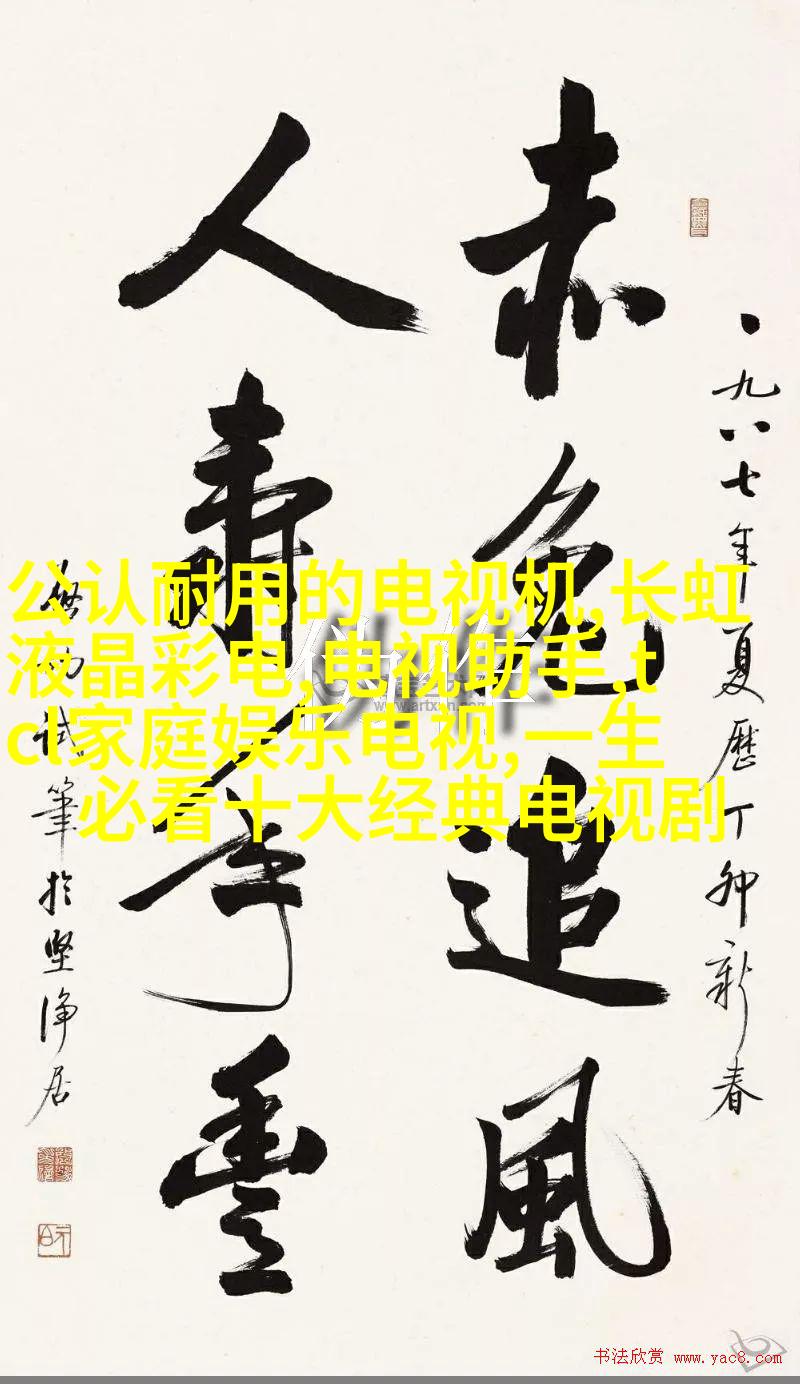 一九八七年夏歷丁卯新春
赤兔追風
人壽年豐
啟功試筆於堅淨居
公认耐用的电视机,长虹
液晶彩电,电视助手,t
cl家庭娱乐电视,一生
必看十大经典电视剧
书法欣赏 www.yac8.com